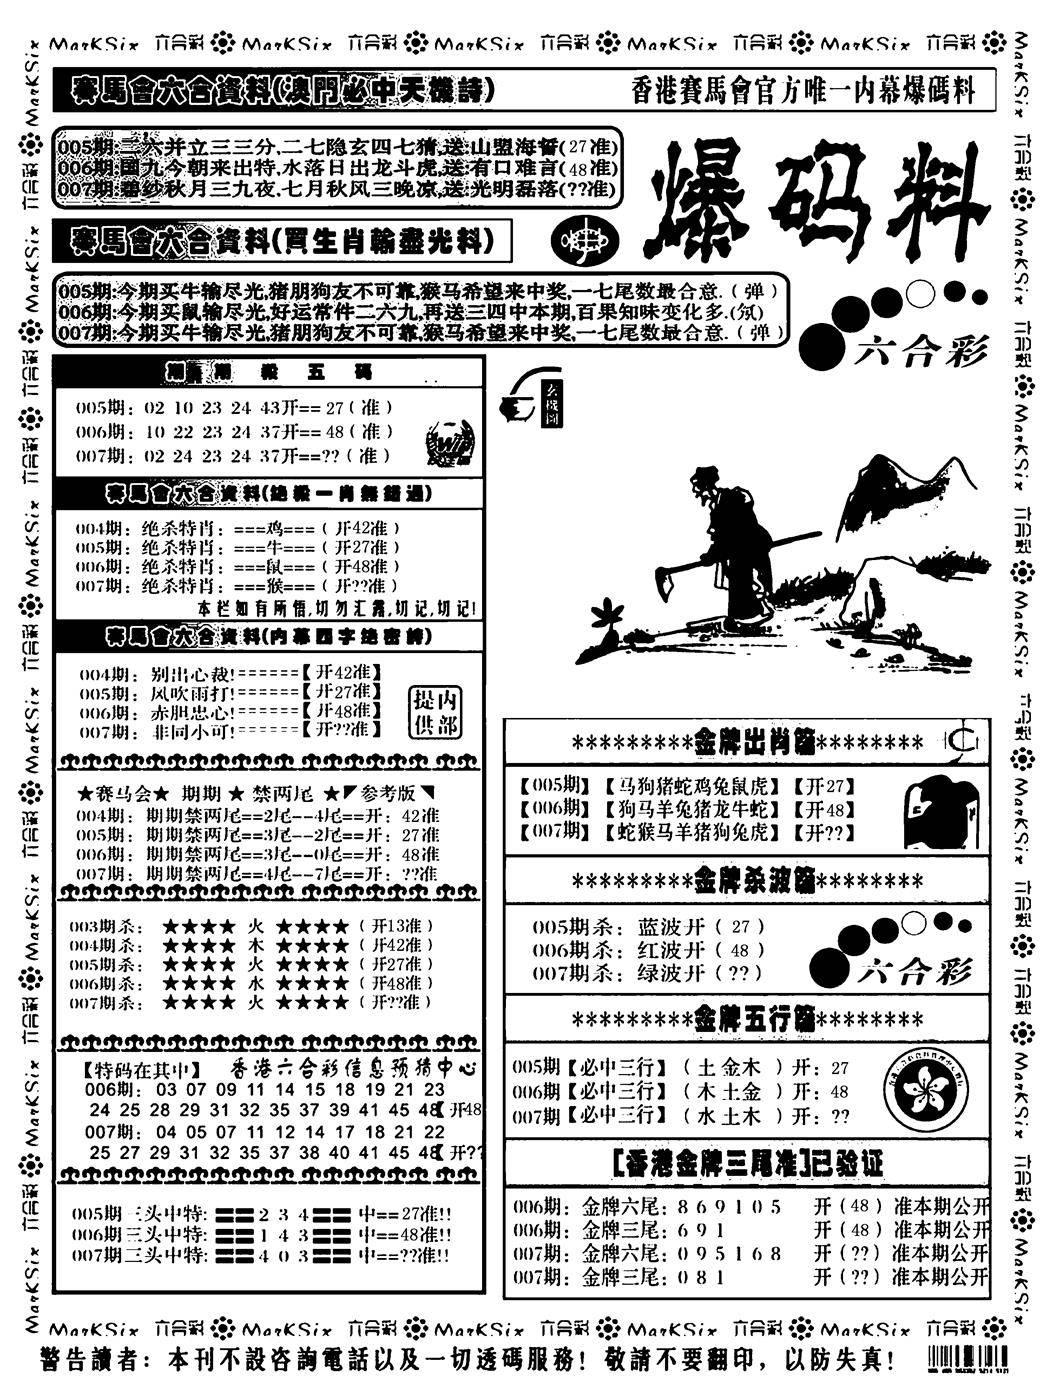 MarKSix 六合彩 MarKSix 六合彩 MarKSix 六合彩 MarKSix 六合彩 MarKSix 六合彩
賽馬會六合資料(澳門必中天機詩)
香港賽馬會官方唯一内幕爆碼料
005期:二六并立三三分,二七隐玄四七猜,送:山盟海誓(27准)
006期:国九今朝来出特,水落日出龙斗虎,送:有口难言(48准)
007期:碧纱秋月三九夜,七月秋风三晚凉,送:光明磊落(??准)
爆码料
賽馬會六合資料(買生肖輸盡光料)
005期:今期买牛输尽光,猪朋狗友不可靠,猴马希望来中奖,一七尾数最合意.(弹)
006期:今期买鼠输尽光,好运常件二六九,再送三四中本期,百果知味变化多.(氖)
007期:今期买牛输尽光,猪朋狗友不可靠,猴马希望来中奖,一七尾数最合意.(弹)
六合彩
期期殺五碼
005期: 02 10 23 24 43开== 27(准)
006期: 10 22 23 24 37开== 48(准)
007期: 02 24 23 24 37开==??(准)
玄機圖
賽馬會六合資料(绝殺一肖無錯過)
004期: 绝杀特肖: ===鸡===(开42准)
005期: 绝杀特肖: ===牛===(开27准)
006期: 绝杀特肖: ===鼠===(开48准)
007期: 绝杀特肖: ===猴===(开??准)
本栏如有所悟,切勿汇露,切记,切记!
賽馬會六合資料(内幕四字绝密詩)
004期: 别出心裁!======【开42准】
005期: 风吹雨打!======【开27准】
006期: 赤胆忠心!======【开48准】
007期: 非同小可!======【开??准】
内部提供
★赛马会★ 期期 ★ 禁两尾 ★参考版
004期: 期期禁两尾==2尾--4尾==开: 42准
005期: 期期禁两尾==3尾--2尾==开: 27准
006期: 期期禁两尾==3尾--0尾==开: 48准
007期: 期期禁两尾==4尾--7尾==开: ??准
003期杀: ★★★★ 火 ★★★★(开13准)
004期杀: ★★★★ 木 ★★★★(开42准)
005期杀: ★★★★ 火 ★★★★(开27准)
006期杀: ★★★★ 水 ★★★★(开48准)
007期杀: ★★★★ 火 ★★★★(开??准)
【特码在其中】 香港六合彩信息预猜中心
006期: 03 07 09 11 14 15 18 19 21 23
24 25 28 29 31 32 35 37 39 41 45 48【开48
007期: 04 05 07 11 12 14 17 18 21 22
25 27 29 31 32 35 37 38 40 41 45 48【开??
005期三头中特: 2 3 4 中==27准!!
006期三头中特: 1 4 3 中==48准!!
007期三头中特: 4 0 3 中==??准!!
*********金牌出肖篇********
【005期】【马狗猪蛇鸡兔鼠虎】【开27】
【006期】【狗马羊兔猪龙牛蛇】【开48】
【007期】【蛇猴马羊猪狗兔虎】【开??】
*********金牌杀波篇********
005期杀: 蓝波开(27)
006期杀: 红波开(48)
007期杀: 绿波开(??)
六合彩
*********金牌五行篇********
005期【必中三行】(土金木)开: 27
006期【必中三行】(木土金)开: 48
007期【必中三行】(水土木)开: ??
[香港金牌三尾准]已验证
006期: 金牌六尾: 8 6 9 1 0 5 开(48)准本期公开
006期: 金牌三尾: 6 9 1 开(48)准本期公开
007期: 金牌六尾: 0 9 5 1 6 8 开(??)准本期公开
007期: 金牌三尾: 0 8 1 开(??)准本期公开
MarKSix 六合彩 MarKSix 六合彩 MarKSix 六合彩 MarKSix 六合彩 MarKSix 六合彩
警告讀者: 本刊不設咨詢電話以及一切透碼服務! 敬請不要翻印, 以防失真!